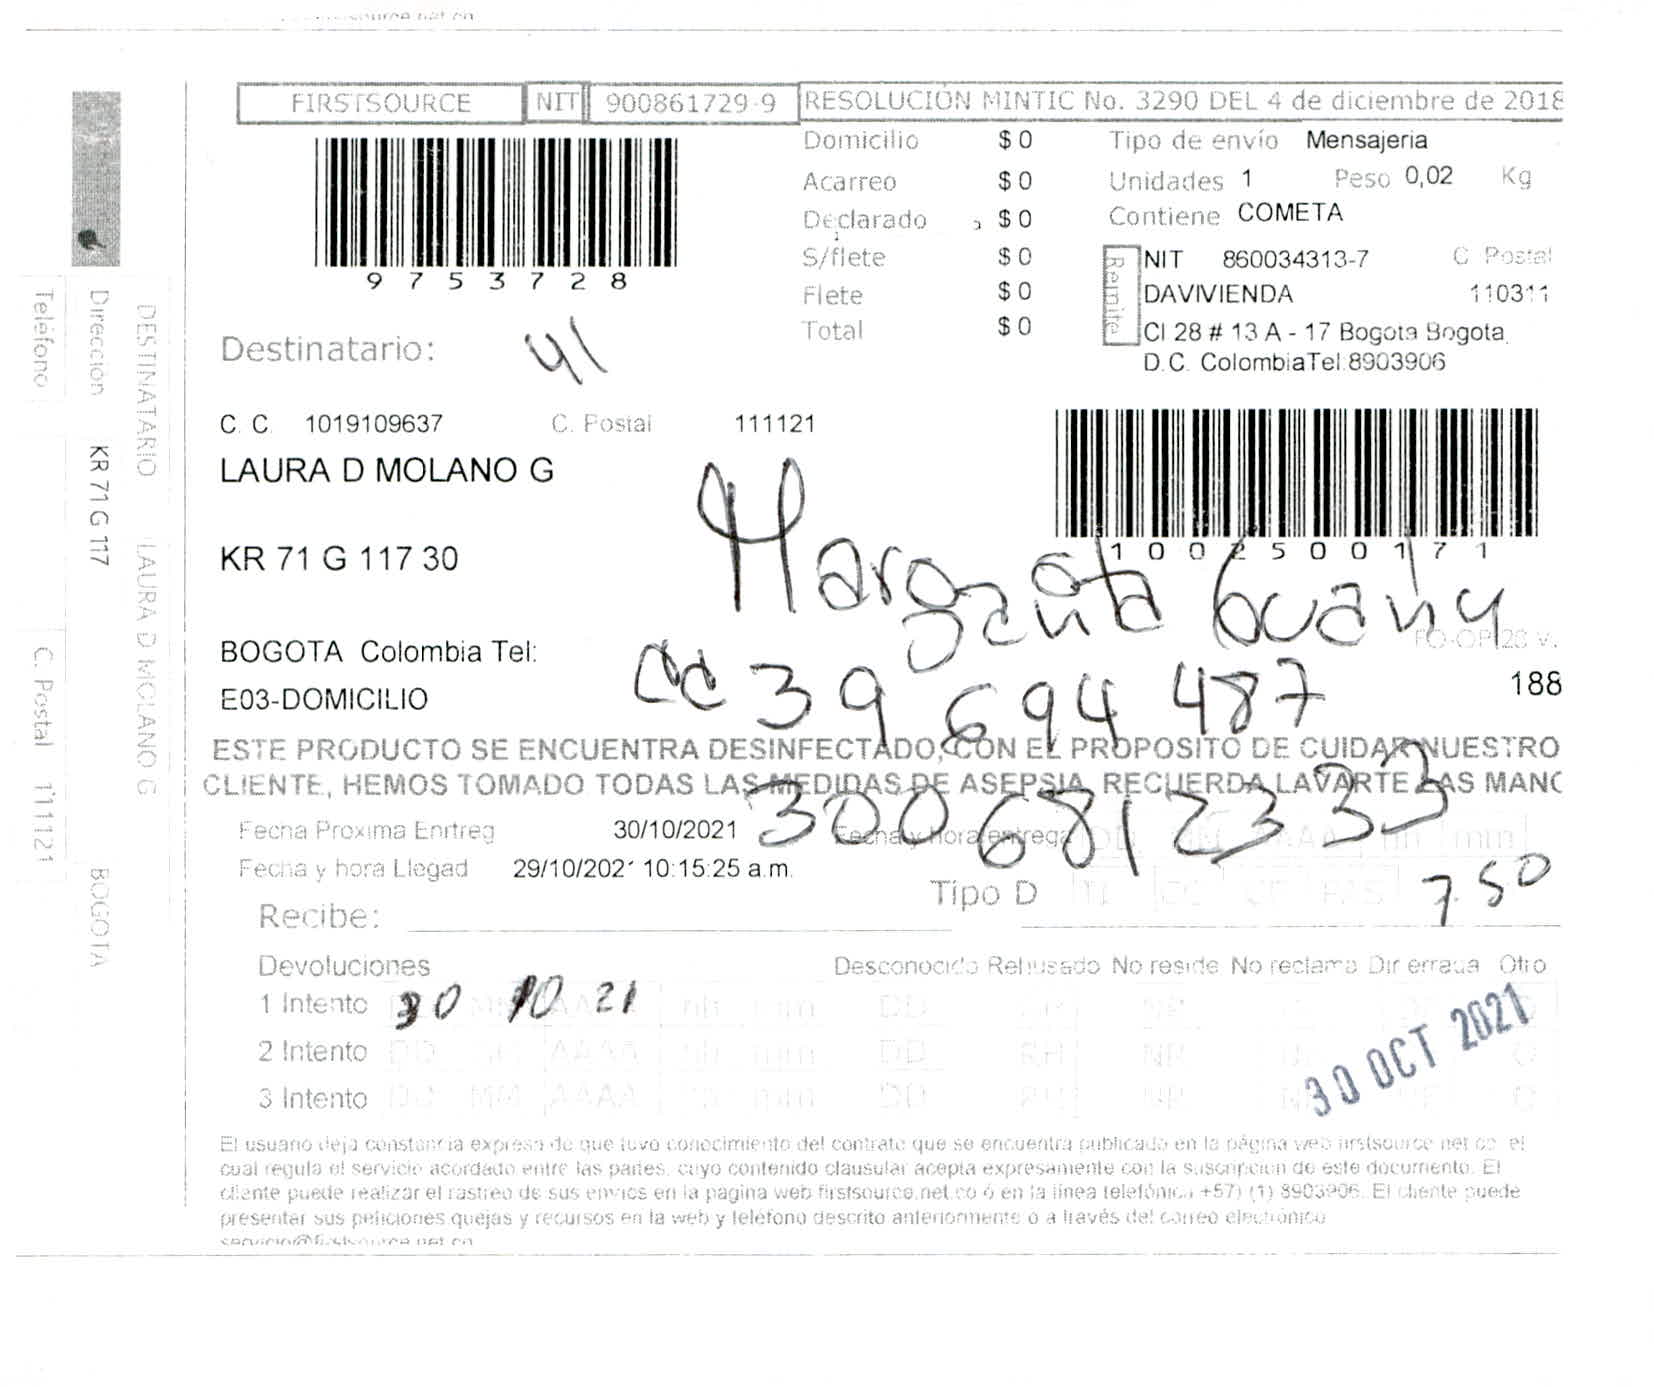 FIRSTSOURCE NIT 900861729-9 RESOLUCIÓN MINTIC No. 3290 DEL 4 de diciembre de 2018
9753728
Domicilio $ 0
Acarreo $ 0
Declarado $ 0
S/flete $ 0
Flete $ 0
Total $ 0
Tipo de envío Mensajeria
Unidades 1 Peso 0,02 Kg
Contiene COMETA
Remite
NIT 860034313-7 C Postal
DAVIVIENDA 110311
Cl 28 # 13 A - 17 Bogota Bogota
D.C. Colombia Tel:8903906
Destinatario: 41
C. C. 1019109637 C. Postal 111121
LAURA D MOLANO G
1002500171
KR 71 G 117 30
Margarita
BOGOTA Colombia Tel:
FO-OP 28 v.
CC 39 694 487
188
E03-DOMICILIO
ESTE PRODUCTO SE ENCUENTRA DESINFECTADO, CON EL PROPOSITO DE CUIDAR NUESTRO
CLIENTE, HEMOS TOMADO TODAS LAS MEDIDAS DE ASEPSIA, RECUERDA LAVARTE LAS MANO
3006812333
Fecha Proxima Enrtreg 30/10/2021 Fecha y hora entrega DD MM AAAA hh mm
Fecha y hora Llegad 29/10/2021 10:15:25 a.m.
Tipo D TI CC CE PAS
7.50
Recibe:
Devoluciones Desconocido Rehusado No reside No reclama Dir errada Otro
1 Intento 30 10 21
2 Intento DD MM AAAA hh mm DD RH NR
3 Intento DD MM AAAA hh mm DD RH NR
30 OCT 2021
El usuario deja constancia expresa de que tuvo conocimiento del contrato que se encuentra publicado en la página web firstsource.net.co. el
cual regula el servicio acordado entre las partes, cuyo contenido clausular acepta expresamente con la suscripción de este documento. El
cliente puede realizar el rastreo de sus envios en la pagina web firstsource.net.co ó en la línea telefónica +57) (1) 8903906. El cliente puede
presentar sus peticiones quejas y recursos en la web y teléfono descrito anteriormente o a través del correo electrónico
servicio@firstsource.net.co
DESTINATARIO LAURA D MOLANO G
Dirección KR 71 G 117 BOGOTA
Teléfono C. Postal 111121